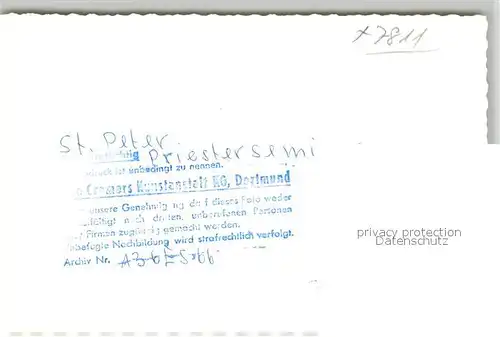 x7811
St. Peter
Priestersemi
ist unbedingt zu nennen.
Cramers Kunstanstalt KG, Dortmund
unsere Genehmigung darf dieses Foto weder
noch dritten, unberufenen Personen
Firmen zugängig gemacht werden.
Unbefugte Nachbildung wird strafrechtlich verfolgt.
Archiv Nr.
privacy protection
Datenschutz